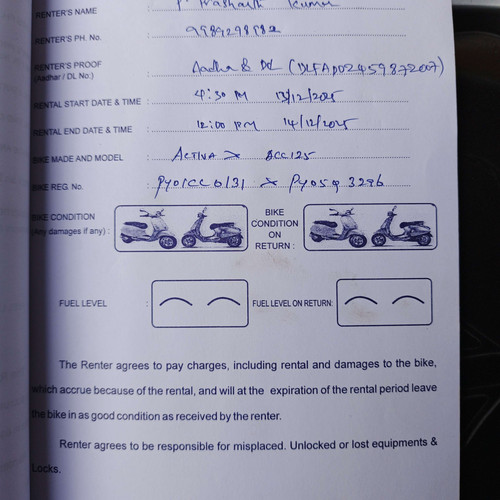 RENTER'S NAME : P Prashanth Kumar
RENTER'S PH. No. :
RENTER'S PROOF : Aadhar & DL (DLFAP02459872007)
(Aadhar / DL No.)
RENTAL START DATE & TIME : 4:30 PM 13/12/2025
RENTAL END DATE & TIME : 12:00 PM 14/12/2025
BIKE MADE AND MODEL : ACTIVA
BIKE REG. No. : PY01CC6131 PY05Q3296
BIKE CONDITION
(Any damages if any) :
BIKE
CONDITION
ON
RETURN :
FUEL LEVEL : FUEL LEVEL ON RETURN:
The Renter agrees to pay charges, including rental and damages to the bike,
which accrue because of the rental, and will at the expiration of the rental period leave
the bike in as good condition as received by the renter.
Renter agrees to be responsible for misplaced. Unlocked or lost equipments &
Locks.